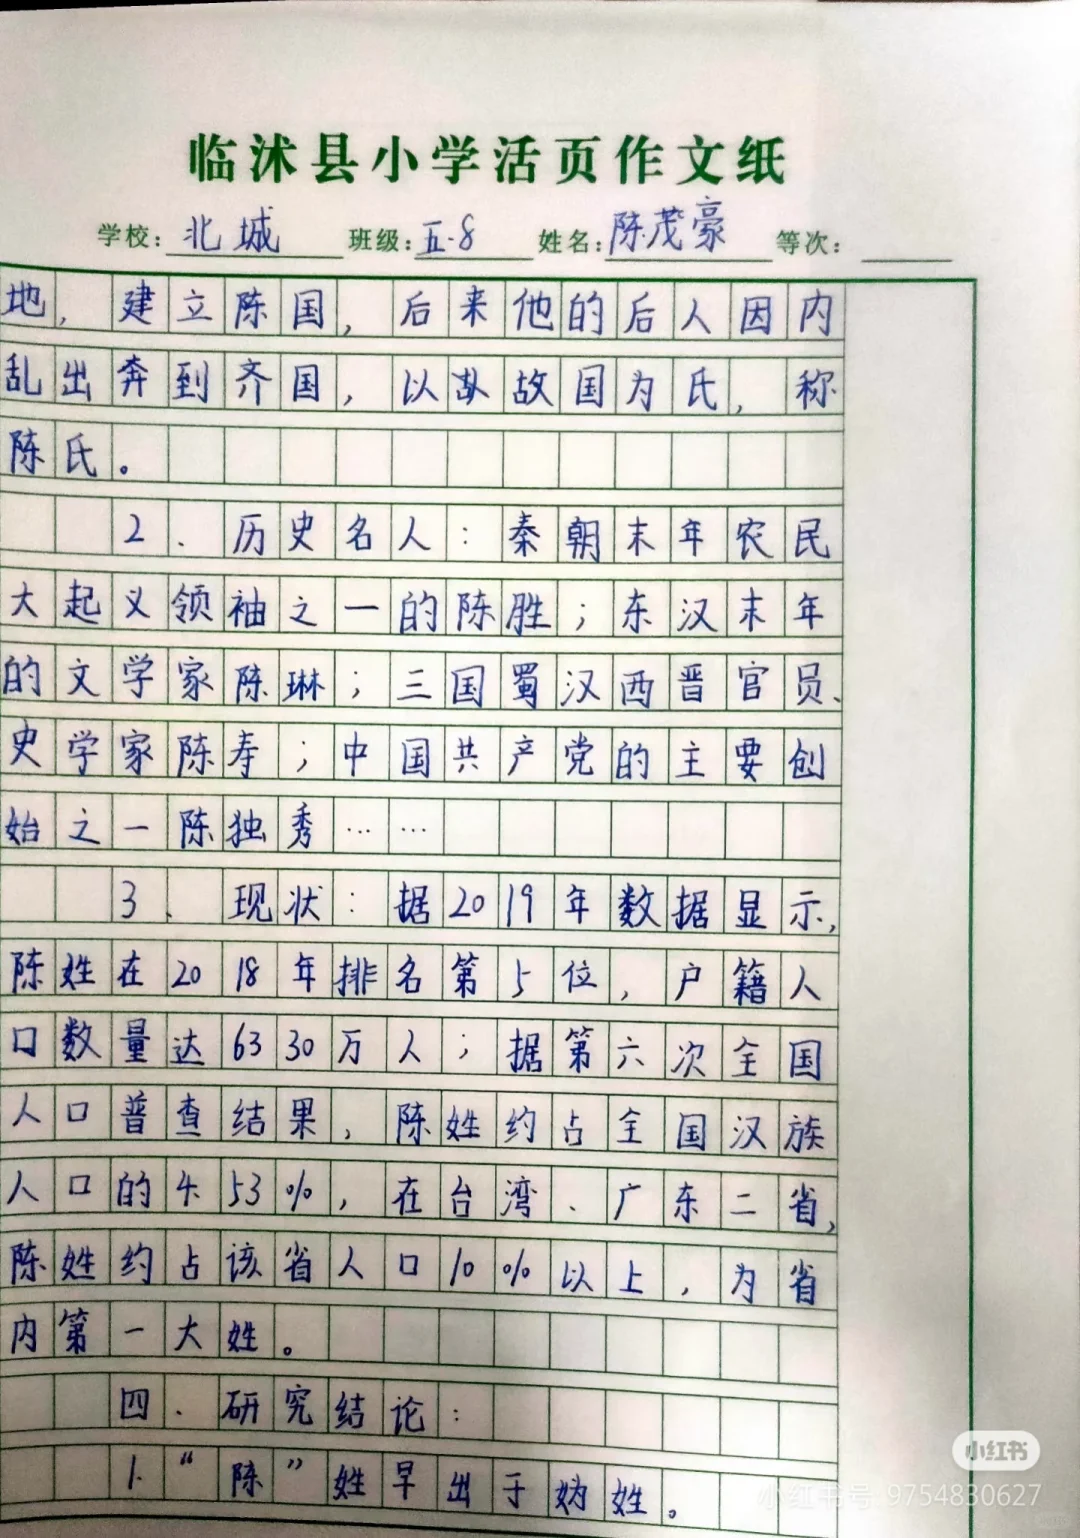 临沭县小学活页作文纸
学校：北城 班级：五.8 姓名：陈茂豪 等次：
地，建立陈国，后来他的后人因内
乱出奔到齐国，以故国为氏，称
陈氏。
2、历史名人：秦朝末年农民
大起义领袖之一的陈胜；东汉末年
的文学家陈琳；三国蜀汉西晋官员、
史学家陈寿；中国共产党的主要创
始之一陈独秀……
3、现状：据2019年数据显示，
陈姓在2018年排名第5位，户籍人
口数量达6330万人；据第六次全国
人口普查结果，陈姓约占全国汉族
人口的4.53%，在台湾、广东二省，
陈姓约占该省人口10%以上，为省
内第一大姓。
四、研究结论：
1.“陈”姓早出于妫姓。
小红书
小红书号 9754830627